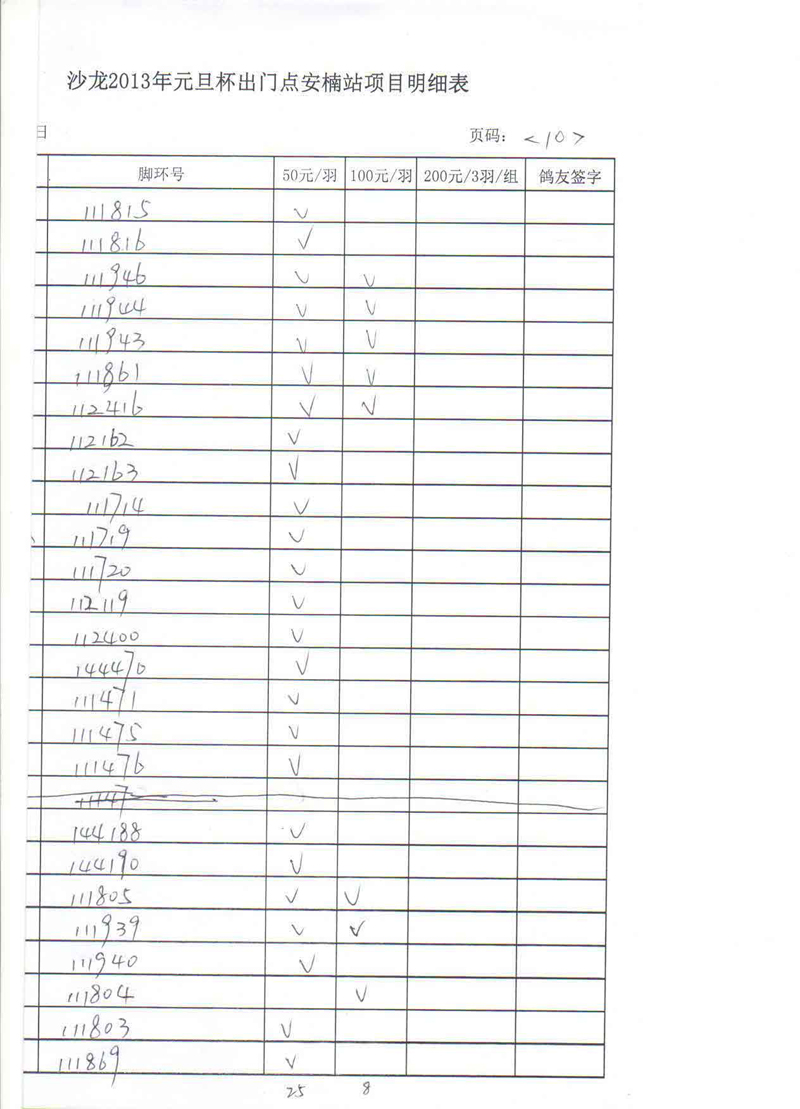 沙龙2013年元旦杯出门点安楠站项目明细表
日 页码：<10>
脚环号 50元/羽 100元/羽 200元/3羽/组 鸽友签字
111815 √
111816 √
111946 √ √
111944 √ √
111943 √ √
111861 √ √
112416 √ √
112162 √
112163 √
111714 √
111719 √
111720 √
112119 √
112400 √
144470 √
111471 √
111475 √
111476 √
11147
144188 √
144190 √
111805 √ √
111939 √ √
111940 √
111804 √
111803 √
111869 √
25 8